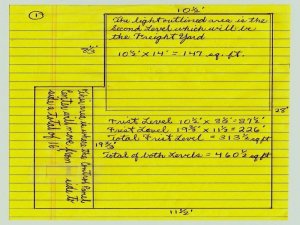 ①
10½'
The light outlined area is the
Second Level which will be
the Freight Yard
10½' x 14' = 147 sq. ft.
First Level 10½' x 8½' = 87½'
First Level 19½' x 11½ = 226'
Total First Level = 313½ sq ft
19½'
Total of both Levels = 460½ sq ft
This area is where the Control Panel
side a total of 16'
11½'